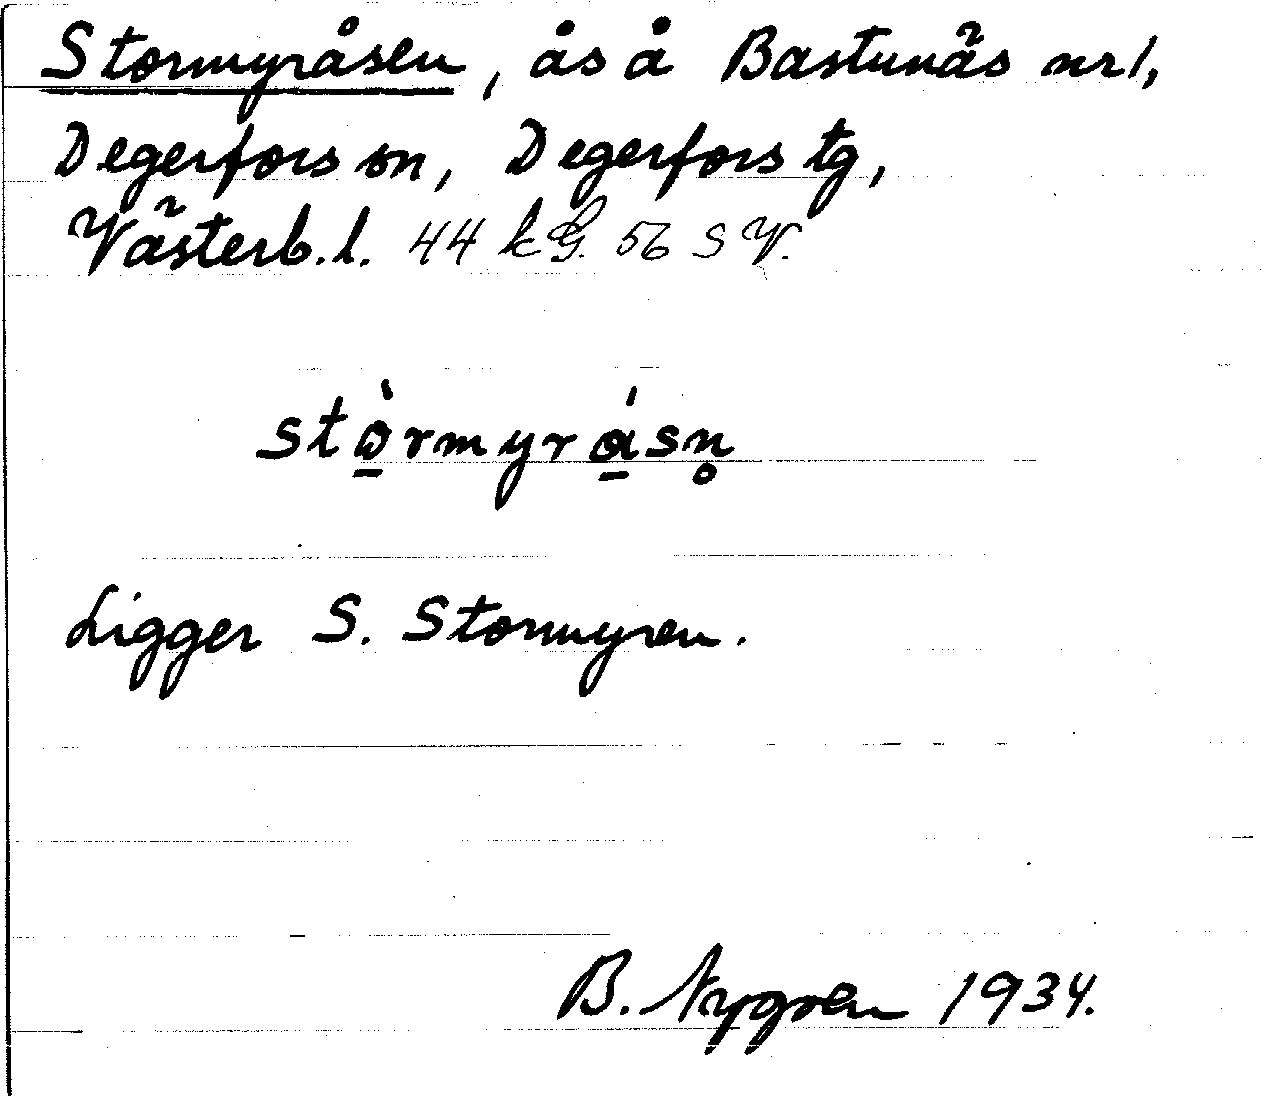 Stormyråsen, ås å Bastunäs nr 1,
Degerfors sn, Degerfors tg,
Västerb. l. 44 kG. 56 S V.
stò̱rmyrá̱sn̥
Ligger S. Stormyren.
B. Nygren 1934.